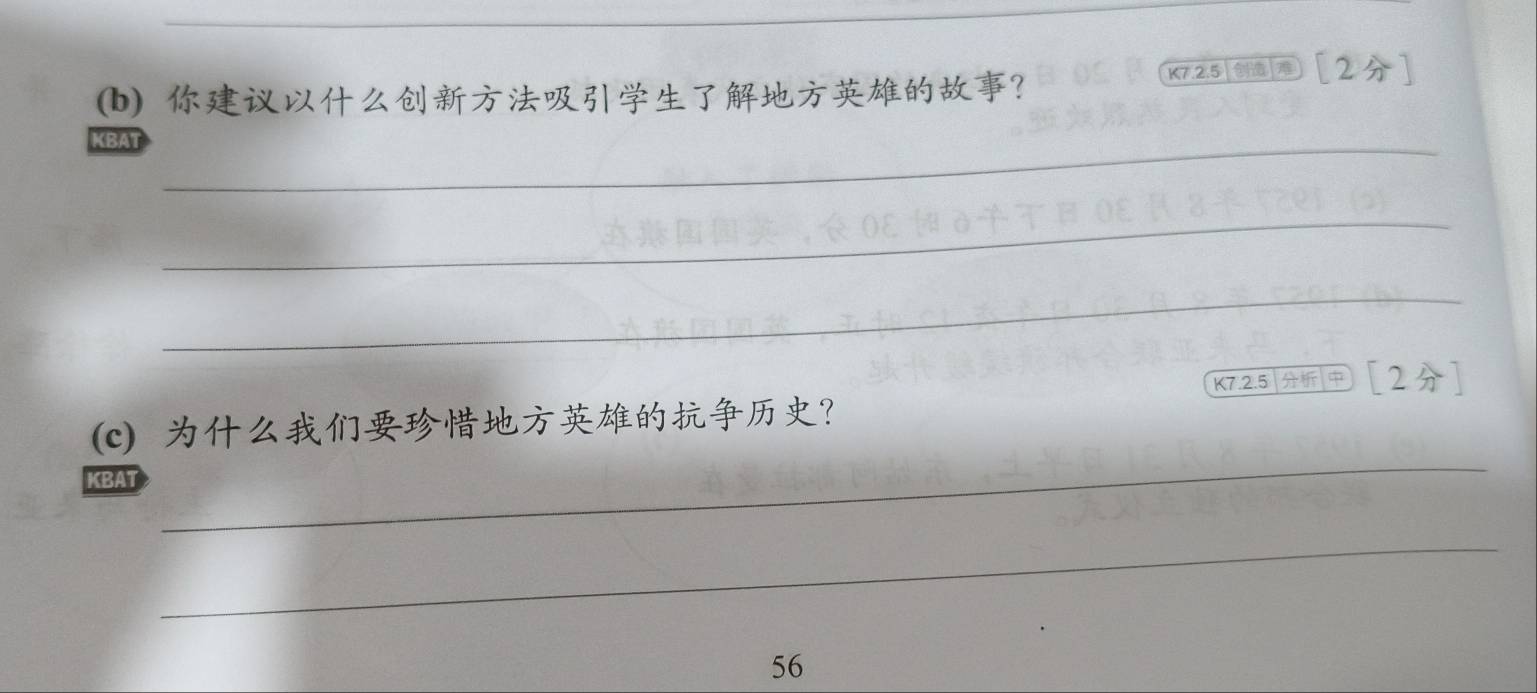 (b) 你建议以什么创新方法吸引学生了解地方英雄的故事? K7.2.5 创造 难 [2分]
KBAT
(c) 为什么我们要珍惜地方英雄的抗争历史? K7.2.5 分析 中 [2分]
KBAT
56